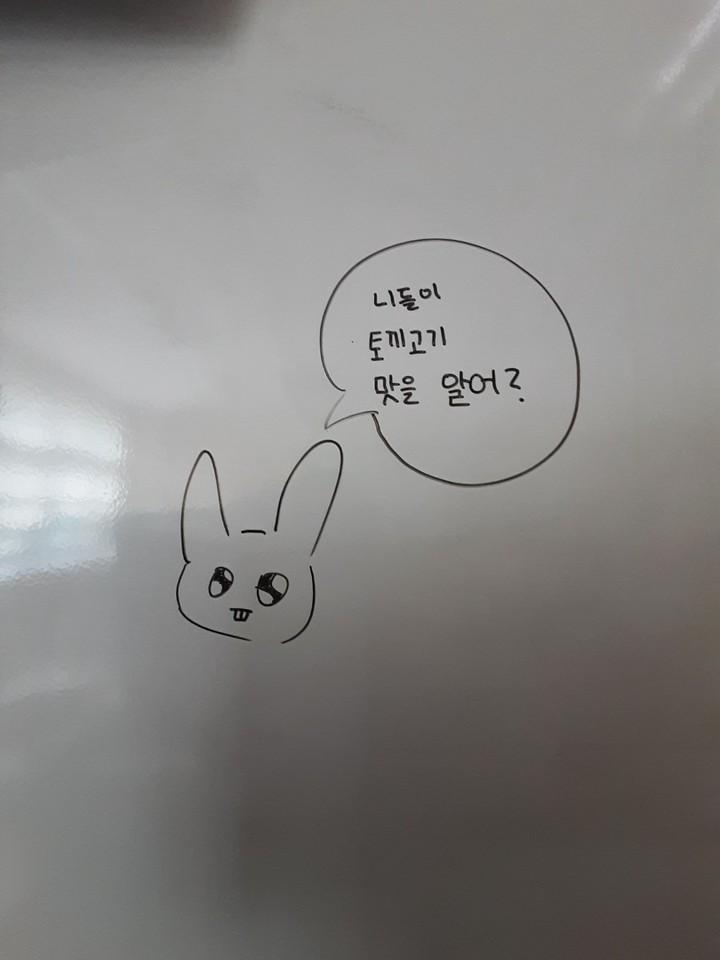 니들이
토끼고기
맛을 알어?